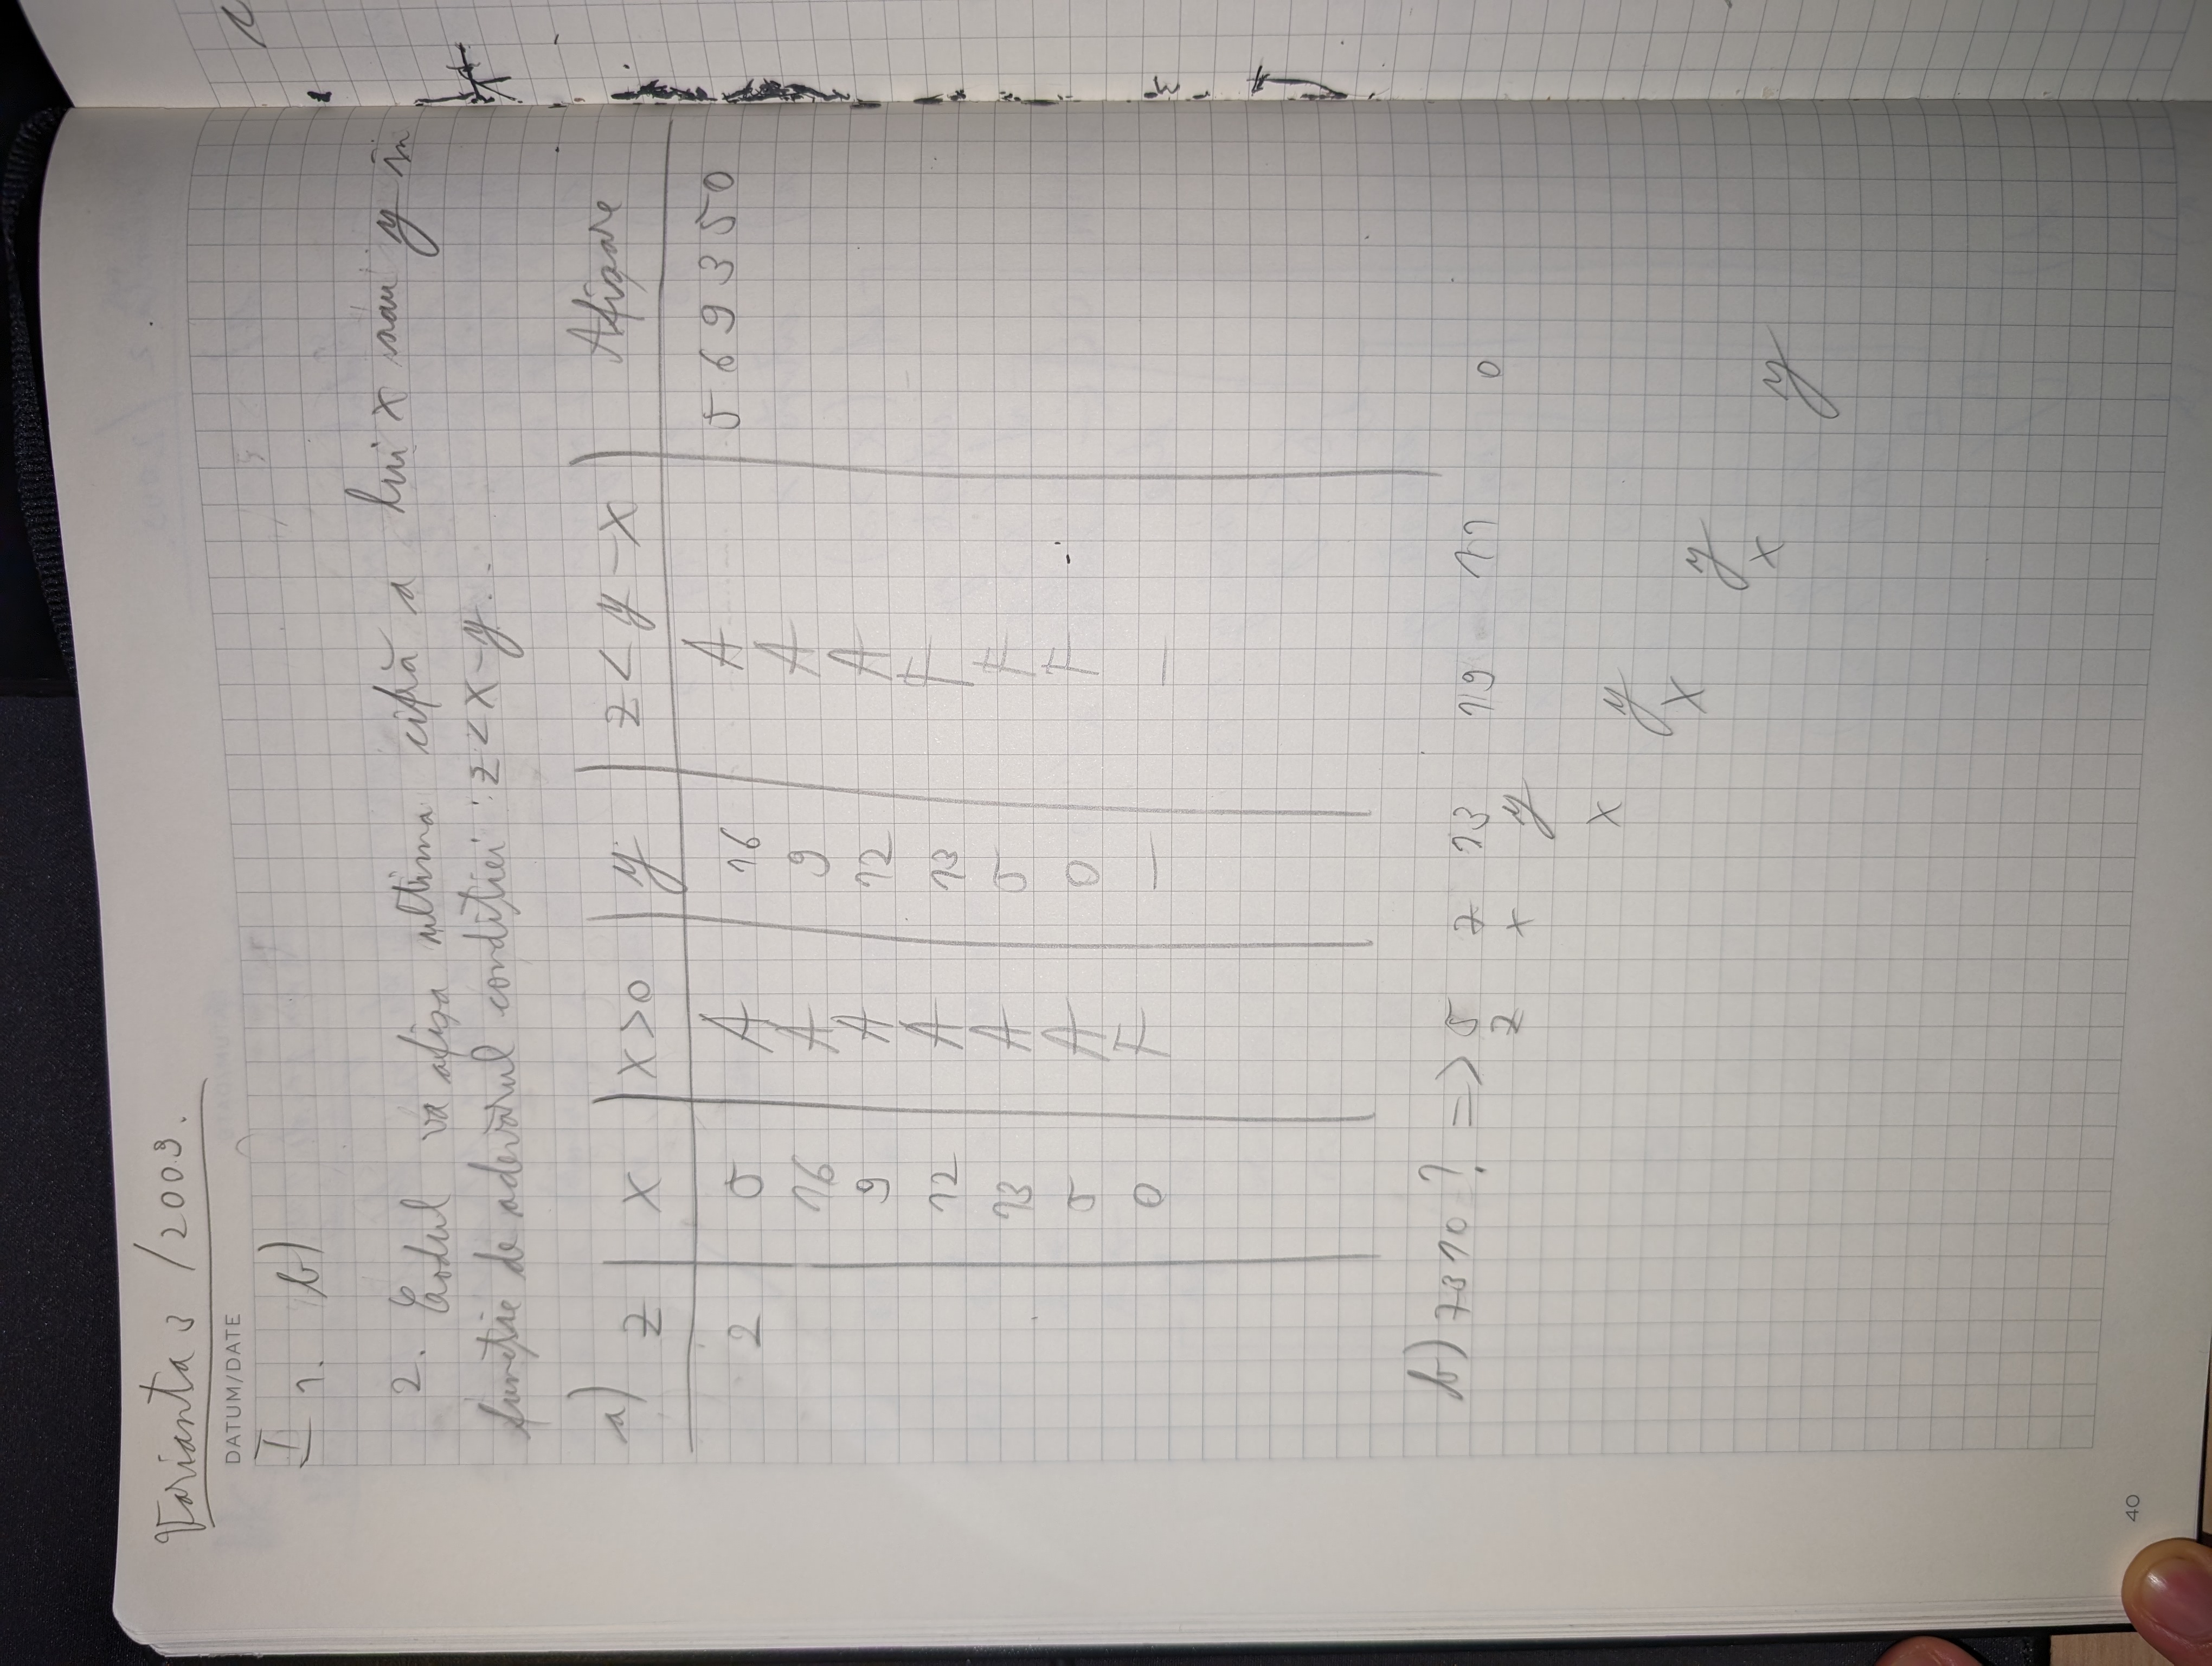 Varianta 3 / 2009.
DATUM/DATE
I 1. b)
2. Codul va afișa ultima cifră a lui x sau y în
funcție de adevărul condiției : z < x - y.
a) z | x | x > 0 | y | z < y - x | Afișare
2 | 5 | A | 16 | A | 5 6 9 3 5 0
16 | A | 9 | A
9 | A | 12 | A
12 | A | 13 | F
13 | A | 5 | F
5 | A | 0 | F
0 | F | — | —
b) 7310 ? => 5 7 13 19 11 0
z x y
x y
x y
x y
40